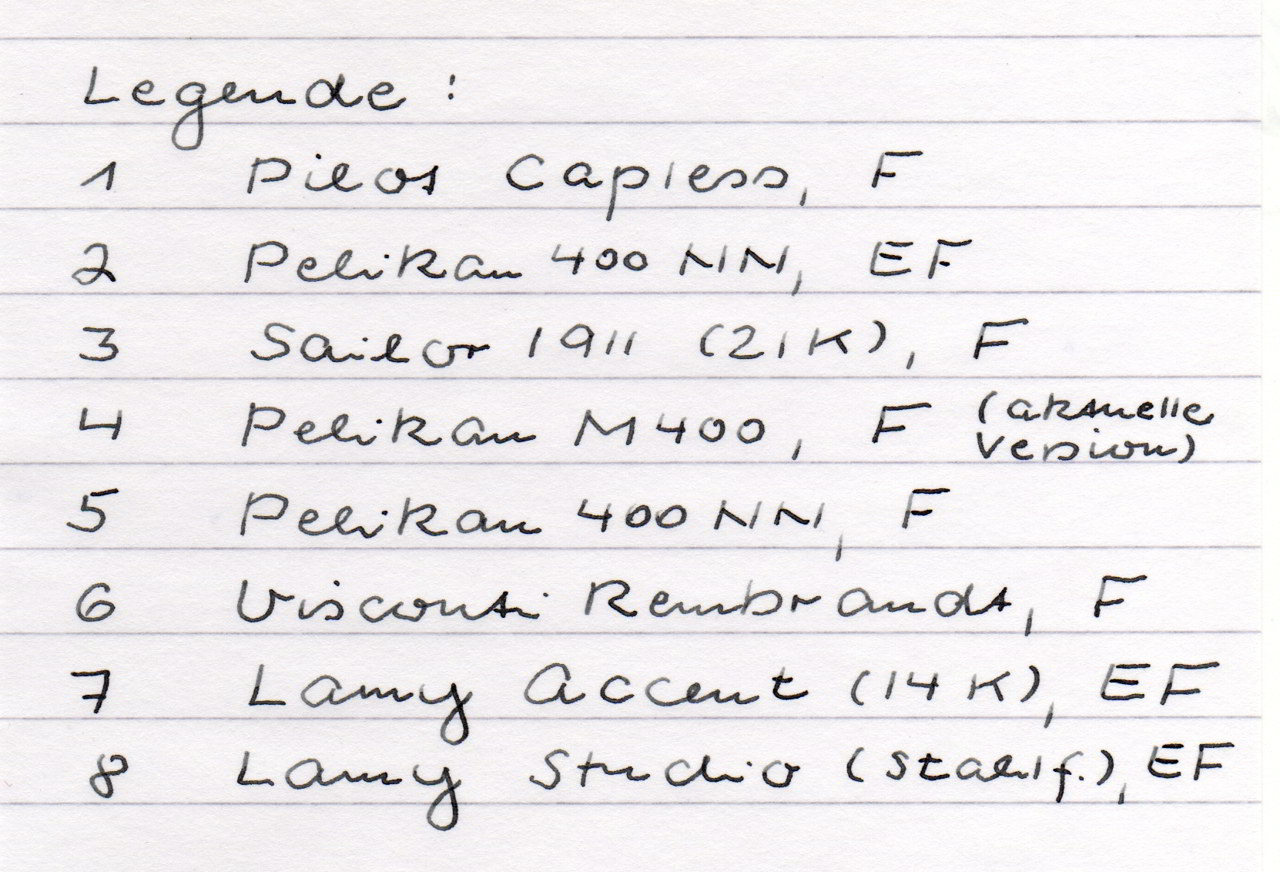 Legende :
1 Pilot Capless, F
2 Pelikan 400 NN, EF
3 Sailor 1911 (21K), F
4 Pelikan M400, F (aktuelle
Version)
5 Pelikan 400 NN, F
6 Visconti Rembrandt, F
7 Lamy Accent (14K), EF
8 Lamy Studio (Stahlf.), EF